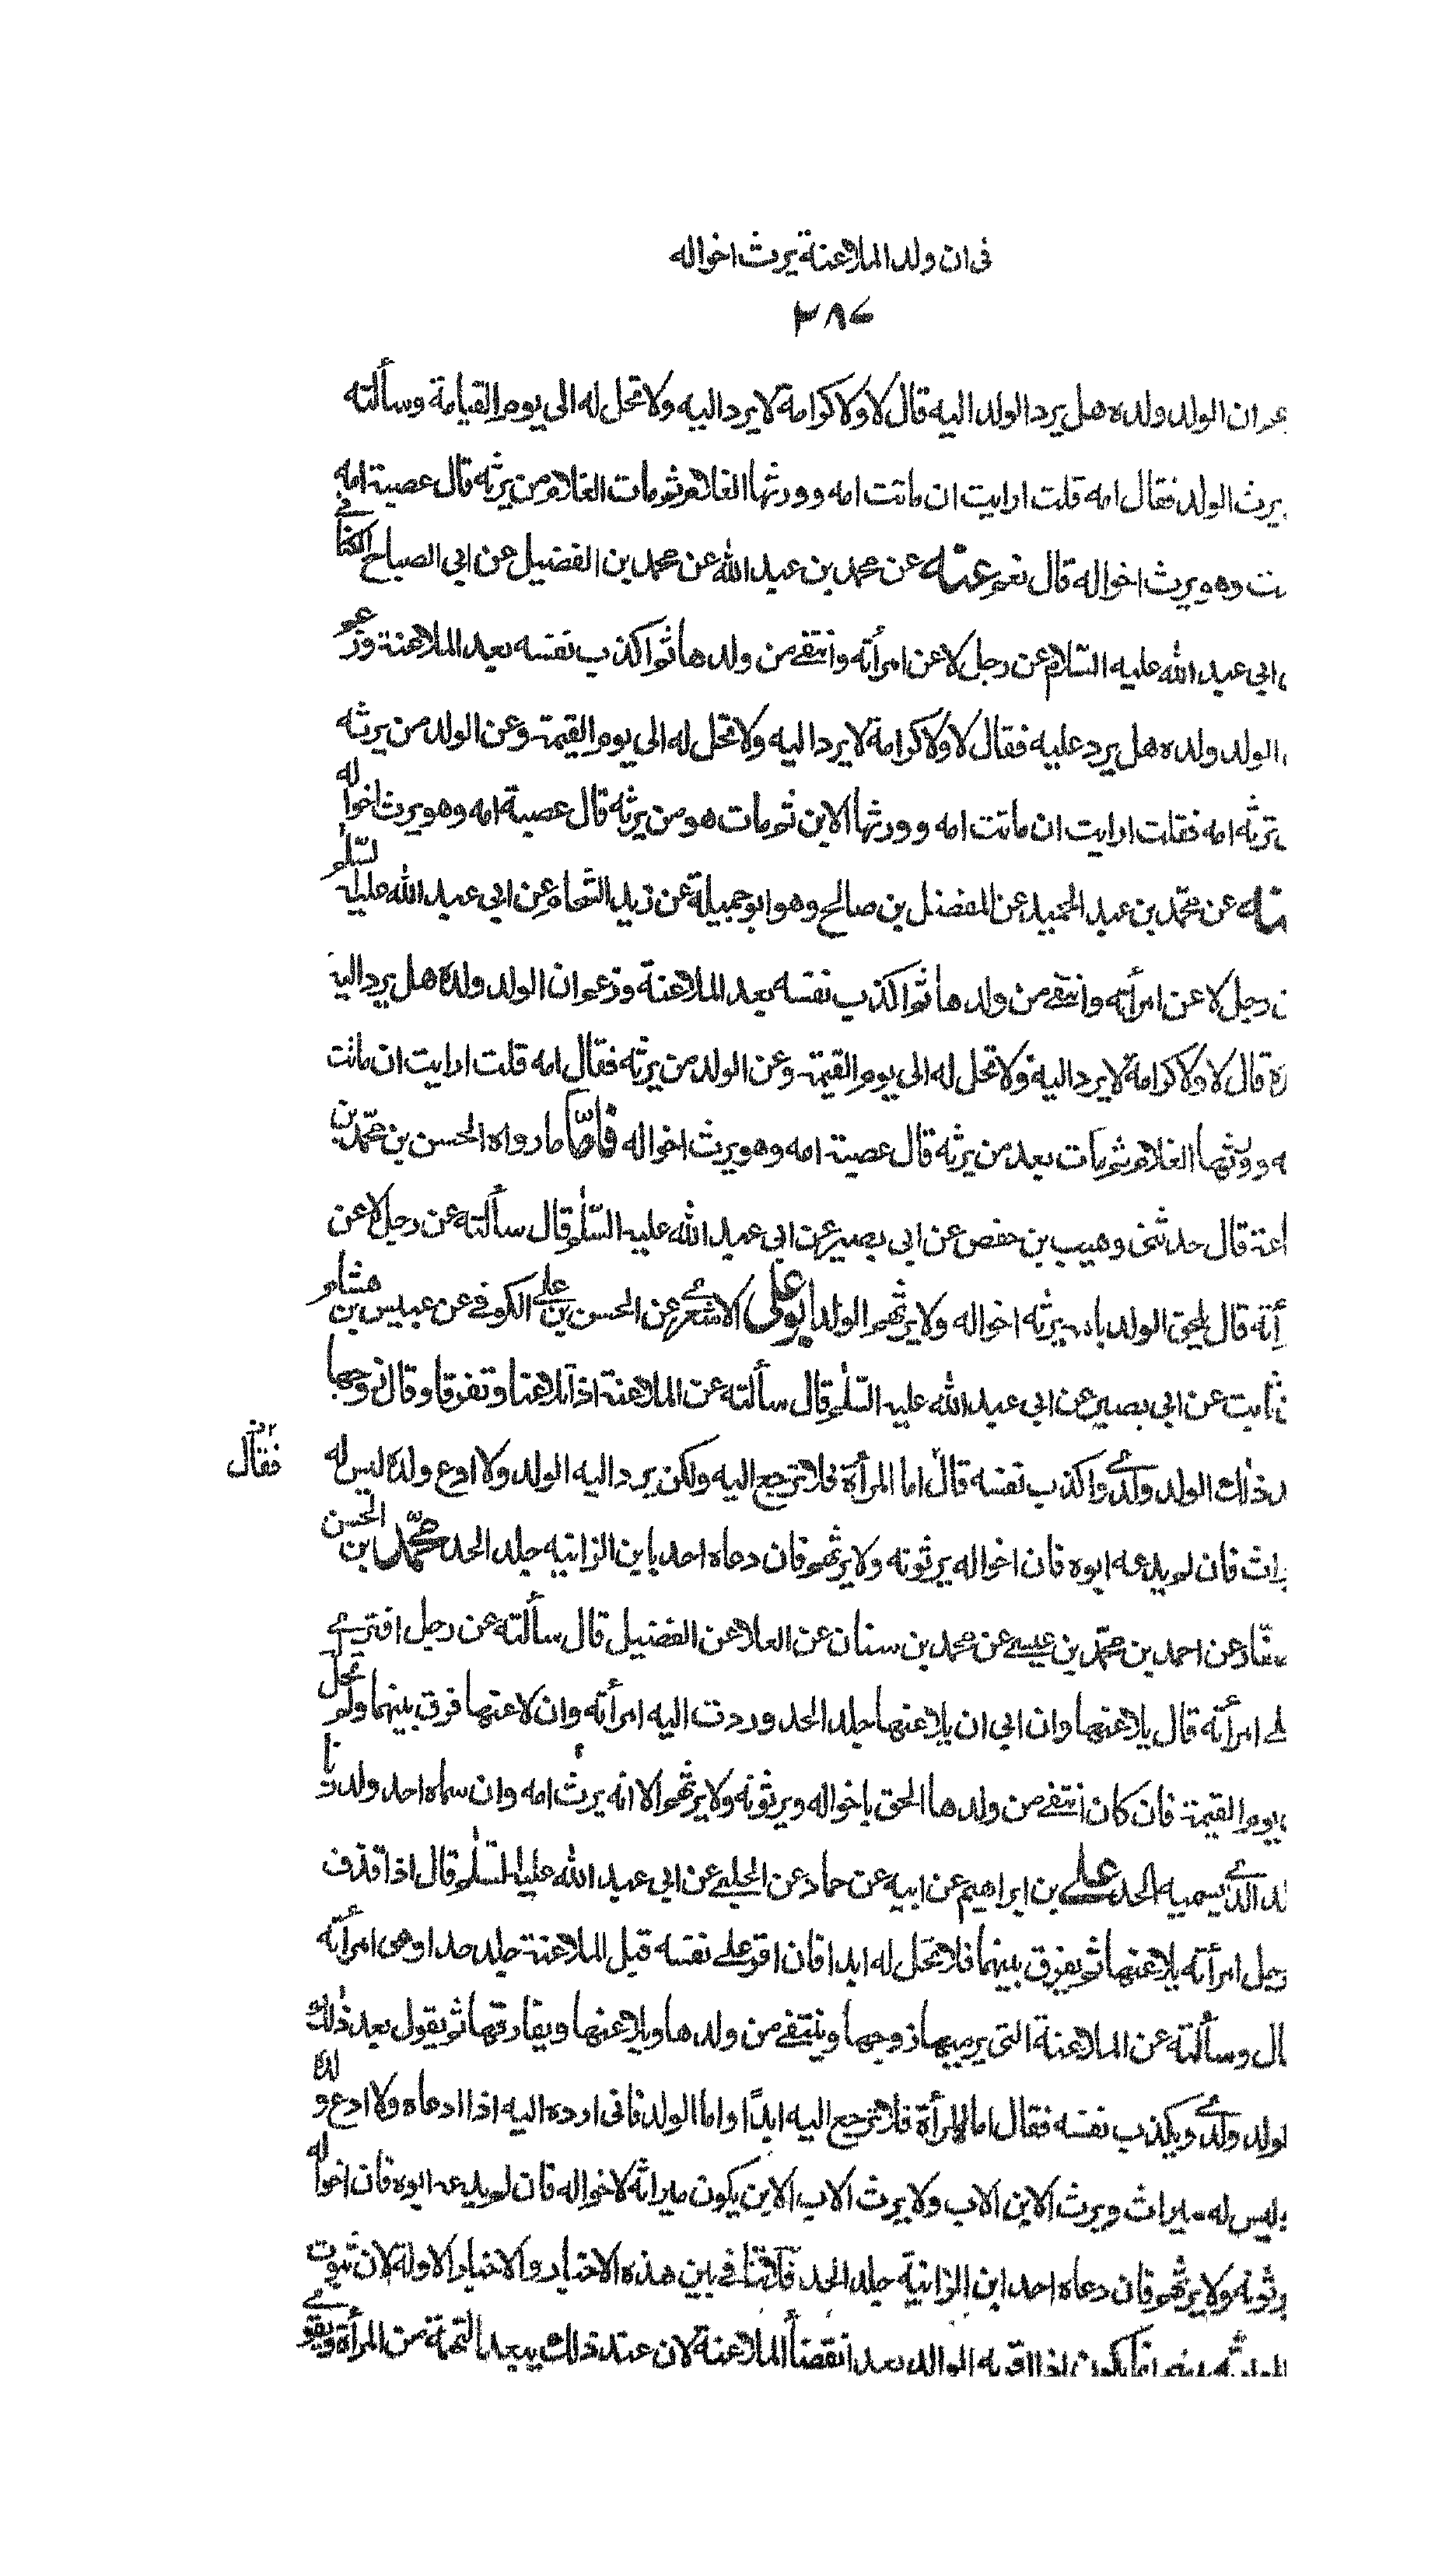 فى ان ولد الملاعنة يرث اخواله
٣٨٧
ان الولد ولده هل يرد الولد اليه قال لا ولا كرامة لا يرد اليه ولا تحل له الى يوم القيامة وسألته
يرث الولد فقال امه قلت ارايت ان ماتت امه وورثها الغلام ثم مات الغلام من يرثه قال عصبة امه
وهو يرث اخواله قال نعم عنه عن محمد بن عبد الله عن محمد بن الفضيل عن ابي الصباح الكناني
ابي عبد الله عليه السلام عن رجل لاعن امرأته وانتفى من ولدها ثم اكذب نفسه بعد الملاعنة وزعم
الولد ولده هل يرد عليه فقال لا ولا كرامة لا يرد اليه ولا تحل له الى يوم القيمة وعن الولد من يرثه
ترثه امه فقلت ارايت ان ماتت امه وورثها الابن ثم مات هو من يرثه قال عصبة امه وهو يرث اخواله
عن محمد بن عبد الحميد عن المفضل بن صالح وهو ابو جميلة عن زيد الشحام عن ابي عبد الله عليه السلم
رجل لاعن امرأته وانتفى من ولدها ثم اكذب نفسه بعد الملاعنة وزعم ان الولد ولده هل يرد اليه
قال لا ولا كرامة لا يرد اليه ولا تحل له الى يوم القيمة وعن الولد من يرثه فقال امه قلت ارايت ان ماتت
وورثها الغلام ثم مات بعد من يرثه قال عصبة امه وهو يرث اخواله فامّا ما رواه الحسن بن محمد بن
قال حدثنى وهيب بن حفص عن ابي بصير عن ابي عبد الله عليه السلم قال سألته عن رجل لاعن
قال يلحق الولد بامه يرثه اخواله ولا يرثهم الولد ابو على الاشعري عن الحسن بن على الكوفي عن عبيس بن هشام
ثابت عن ابي بصير عن ابي عبد الله عليه السلم قال سألته عن الملاعنة اذا تلاعنا وتفرقا وقال زوجها
ذلك الولد ولدي واكذب نفسه قال اما المرأة فلا ترجع اليه ولكن يرد اليه الولد ولا ادع ولده ليس له
فان لم يدعه ابوه فان اخواله يرثونه ولا يرثهم فان دعاه احد يا بن الزانيه جلد الحد محمد بن الحسن
عن احمد بن محمد بن عيسى عن محمد بن سنان عن العلا عن الفضيل قال سألته عن رجل افترى
امرأته قال يلاعنها وان ابى ان يلاعنها جلد الحد وردت اليه امرأته وان لاعنها فرق بينهما ولم تحل
يوم القيمة فان كان انتفى من ولدها الحق باخواله ويرثونه ولا يرثهم الا انه يرث امه وان سماه احد ولد زنا
الذي يسميه الحد على بن ابراهيم عن ابيه عن حماد عن الحلبى عن ابي عبد الله عليه السلم قال اذا قذف
امرأته يلاعنها ثم يفرق بينهما فلا تحل له ابدا فان اقر على نفسه قبل الملاعنة جلد حدا وهى امرأته
وسألته عن الملاعنة التى يرميها زوجها وينتفى من ولدها ويلاعنها ويفارقها ثم يقول بعد ذلك
ولدي ويكذب نفسه فقال اما المرأة فلا ترجع اليه ابدًا واما الولد فانى ارده اليه اذا ادعاه ولا ادع ولده
ليس له ميراث ويرث الابن الاب ولا يرث الاب الابن يكون ميراثه لاخواله فان لم يدعه ابوه فان اخواله
ولا يرثهم فان دعاه احد ابن الزانية جلد الحد بين هذه الاخبار والاخبار الاولة لان ثبوت
انما يكون اذا اقر به الوالد بعد انقضاء الملاعنة لان عند ذلك يبعد التهمة من المرأة ويقوى
فقال